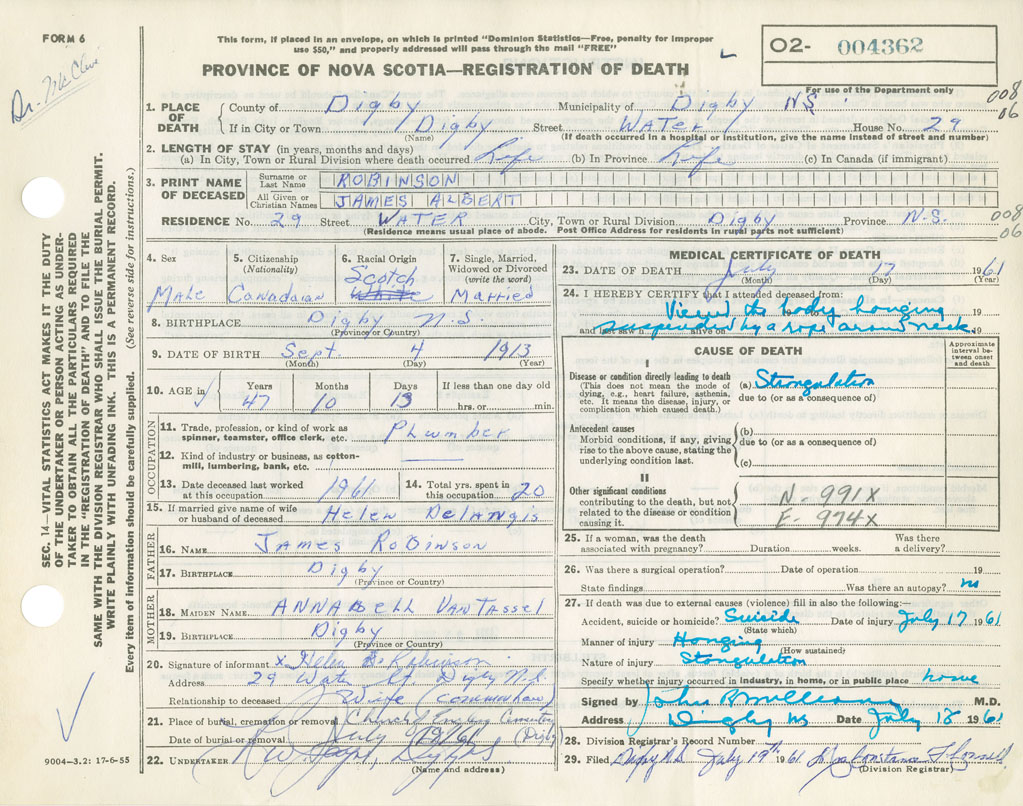 FORM 6
This form, if placed in an envelope, on which is printed "Dominion Statistics—Free, penalty for improper
use $50," and properly addressed will pass through the mail "FREE"
PROVINCE OF NOVA SCOTIA—REGISTRATION OF DEATH
O2- 004362
For use of the Department only
Dr. McCleve
008
06
1. PLACE OF DEATH County of Digby Municipality of Digby N.S.
If in City or Town Digby Street WATER House No. 29
(Name) (If death occurred in a hospital or institution, give the name instead of street and number)
2. LENGTH OF STAY (in years, months and days)
(a) In City, Town or Rural Division where death occurred. Life (b) In Province Life (c) In Canada (if immigrant)
3. PRINT NAME OF DECEASED Surname or Last Name ROBINSON
All Given or Christian Names JAMES ALBERT
RESIDENCE No. 29 Street WATER City, Town or Rural Division Digby Province N.S.
(Residence means usual place of abode. Post Office Address for residents in rural parts not sufficient)
008
06
4. Sex Male
5. Citizenship (Nationality) Canadaian
6. Racial Origin Scotch White
7. Single, Married, Widowed or Divorced (write the word) Married
8. BIRTHPLACE Digby N.S.
(Province or Country)
9. DATE OF BIRTH Sept. 4 1913
(Month) (Day) (Year)
10. AGE in Years 47 Months 10 Days 13 If less than one day old hrs. or min.
OCCUPATION
11. Trade, profession, or kind of work as spinner, teamster, office clerk, etc. Plumber
12. Kind of industry or business, as cotton-mill, lumbering, bank, etc.
13. Date deceased last worked at this occupation 1961
14. Total yrs. spent in this occupation 20
15. If married give name of wife or husband of deceased Helen DeLangis
FATHER
16. NAME James Robinson
17. BIRTHPLACE Digby
(Province or Country)
MOTHER
18. MAIDEN NAME ANNABELL VANTASSEL
19. BIRTHPLACE Digby
(Province or Country)
20. Signature of informant x Helen Robinson
Address 29 Water St. Digby N.S.
Relationship to deceased Wife (common law)
21. Place of burial, cremation or removal Church England Cemetery
Date of burial or removal July 19/61 (Digby)
22. UNDERTAKER Digby
(Name and address)
MEDICAL CERTIFICATE OF DEATH
23. DATE OF DEATH July 17 1961
(Month) (Day) (Year)
24. I HEREBY CERTIFY that I attended deceased from:
Viewed the body hanging 19
and last saw h alive on 19
suspended by a rope around neck.
CAUSE OF DEATH
Approximate interval between onset and death
I
Disease or condition directly leading to death
(This does not mean the mode of dying, e.g., heart failure, asthenia, etc. It means the disease, injury, or complication which caused death.)
(a) Strangulation
due to (or as a consequence of)
Antecedent causes
Morbid conditions, if any, giving rise to the above cause, stating the underlying condition last.
(b)
due to (or as a consequence of)
(c)
II
Other significant conditions
contributing to the death, but not related to the disease or condition causing it.
N - 991X
E - 974X
25. If a woman, was the death associated with pregnancy? Duration weeks. Was there a delivery?
26. Was there a surgical operation? Date of operation 19
State findings Was there an autopsy? no
27. If death was due to external causes (violence) fill in also the following:—
Accident, suicide or homicide? Suicide Date of injury July 17 1961
(State which)
Manner of injury Hanging
(How sustained)
Nature of injury Stangulation
Specify whether injury occurred in industry, in home, or in public place home
Signed by M.D.
Address Digby NS Date July 18 1961
28. Division Registrar's Record Number
29. Filed Digby N.S. July 19th 1961
(Division Registrar)
SEC. 14—VITAL STATISTICS ACT MAKES IT THE DUTY
OF THE UNDERTAKER OR PERSON ACTING AS UNDER-
TAKER TO OBTAIN ALL THE PARTICULARS REQUIRED
IN THE "REGISTRATION OF DEATH" AND TO FILE THE
SAME WITH THE DIVISION REGISTRAR WHO SHALL ISSUE THE BURIAL PERMIT.
WRITE PLAINLY WITH UNFADING INK. THIS IS A PERMANENT RECORD.
Every item of information should be carefully supplied. (See reverse side for instructions.)
9004—3.2: 17-6-55